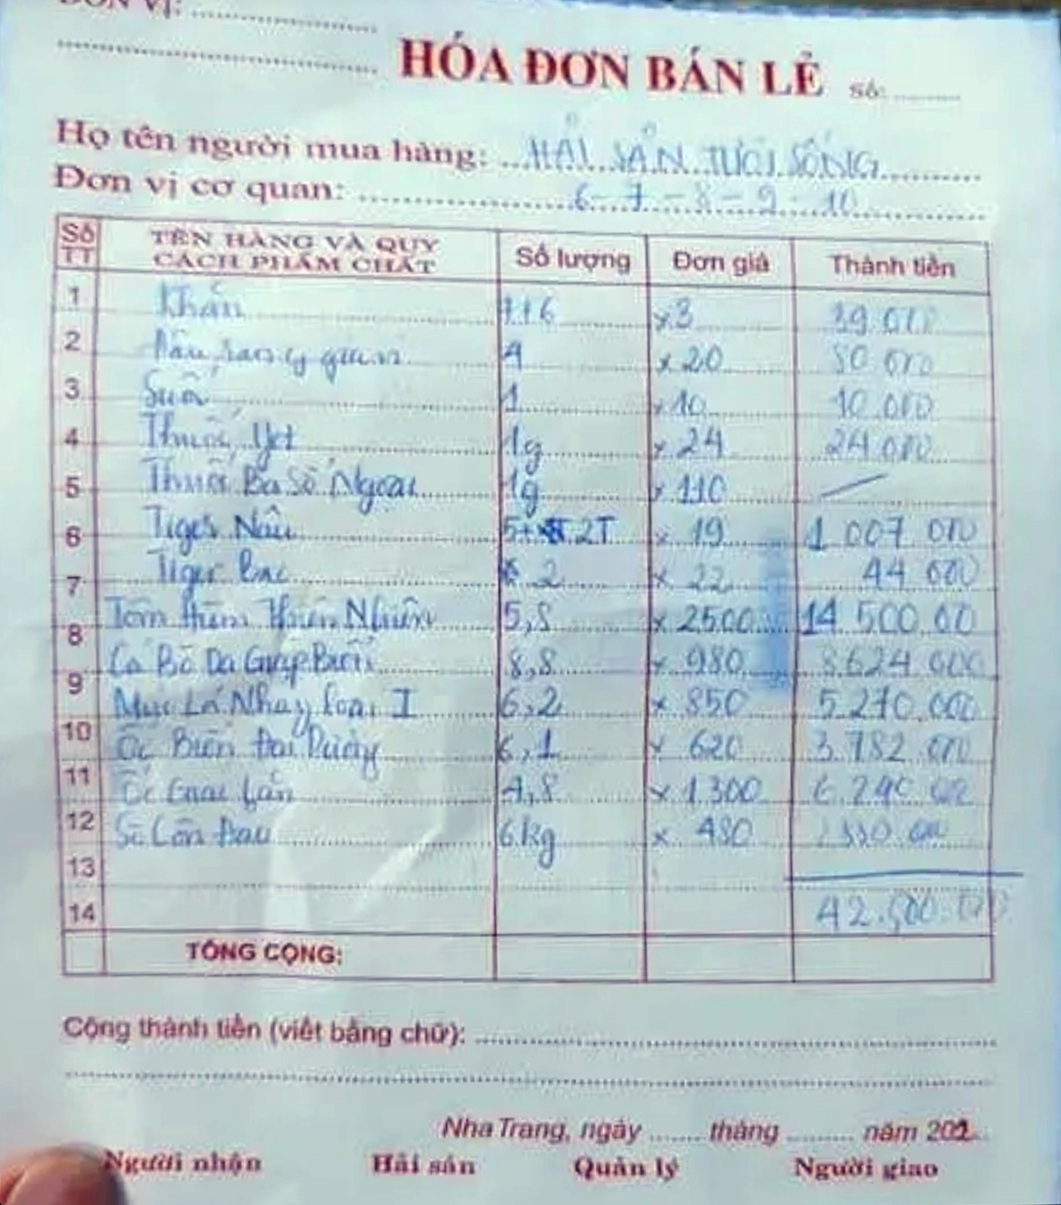 ĐƠN VỊ:
HÓA ĐƠN BÁN LẺ Số:
Họ tên người mua hàng: HẢI SẢN TƯƠI SỐNG
Đơn vị cơ quan: 6-7-8-9-10
Số TT TÊN HÀNG VÀ QUY CÁCH PHẨM CHẤT Số lượng Đơn giá Thành tiền
1 Khăn x3 39.000
2 4 x 20 80 000
3 Suối 1 x 10 10.000
4 Thuốc 1g x 24 24.000
5 Thuốc Ba Số Ngoại 1g x 110
6 Tiger Nâu 5+ 2T x 19 1 007 000
7 Tiger Bạc 2 x 22 44 000
8 Tôm Hùm Thiên Nhiên 5,8 x 2500 14 500.00
9 Cá Bò Da Giáp Biển 8,8 x 980 8.624 000
10 Mực Lá Nhảy Loại I 6,2 x 850 5.270.000
11 Ốc Biển Đại Dương 6,1 x 620 3.782 000
12 Ốc Gai Lăn 4,8 x 1.300 6.240
13 Sò Lông 6kg x 480
14 42.500.000
TỔNG CỘNG:
Cộng thành tiền (viết bằng chữ):
Nha Trang, ngày tháng năm 202
Người nhận Hải sản Quản lý Người giao